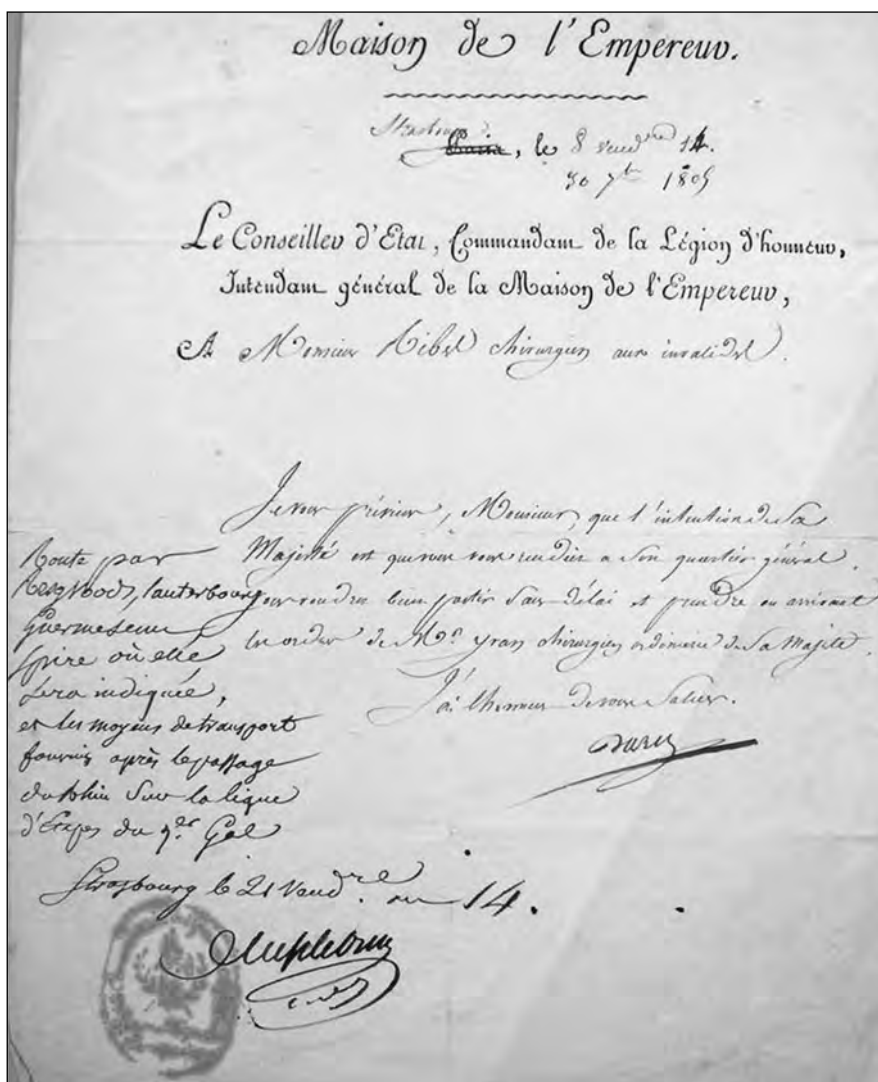 Maison de l'Empereur.
Strasbourg
Paris, le 8 vend.re 14.
30 7bre 1805
Le Conseiller d'Etat, Commandant de la Légion d'honneur,
Intendant général de la Maison de l'Empereur,
A Monsieur Ribes chirurgien aux invalides.
Je vous préviens, Monsieur, que l'intention de Sa
Majesté est que vous vous rendiez a Son quartier général.
vous voudrez bien partir Sans délai et prendre en arrivant
les ordres de Mr. yvan chirurgien ordinaire de Sa Majesté.
J'ai l'honneur de vous Saluer.
Daru
Route par
lauterbourg
Guermesem
Spire où elle
Sera indiquée,
et les moyens de transport
fournis après le passage
du Rhin Sur la ligne
d'Etapes du qer. Gal
Strasbourg le 21 Vendre. an 14.